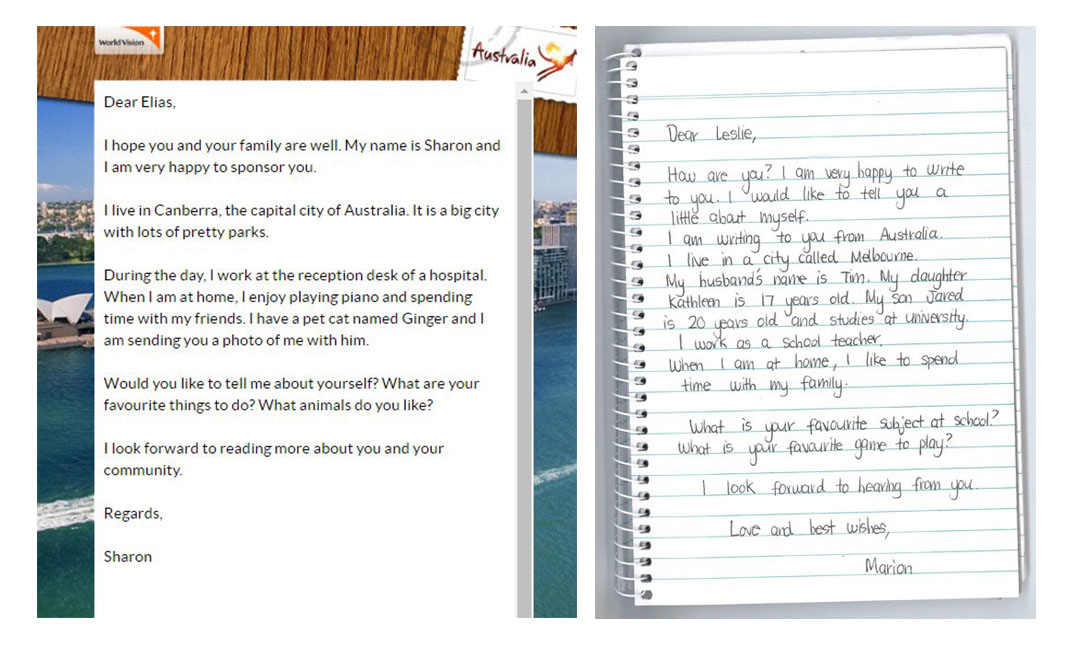 World Vision
Australia
Dear Elias,
I hope you and your family are well. My name is Sharon and
I am very happy to sponsor you.
I live in Canberra, the capital city of Australia. It is a big city
with lots of pretty parks.
During the day, I work at the reception desk of a hospital.
When I am at home, I enjoy playing piano and spending
time with my friends. I have a pet cat named Ginger and I
am sending you a photo of me with him.
Would you like to tell me about yourself? What are your
favourite things to do? What animals do you like?
I look forward to reading more about you and your
community.
Regards,
Sharon
Dear Leslie,
How are you? I am very happy to write
to you. I would like to tell you a
little about myself.
I am writing to you from Australia.
I live in a city called Melbourne.
My husband's name is Tim. My daughter
Kathleen is 17 years old. My son Jared
is 20 years old and studies at university.
I work as a school teacher.
When I am at home, I like to spend
time with my family.
What is your favourite subject at school?
What is your favourite game to play?
I look forward to hearing from you.
Love and best wishes,
Marion